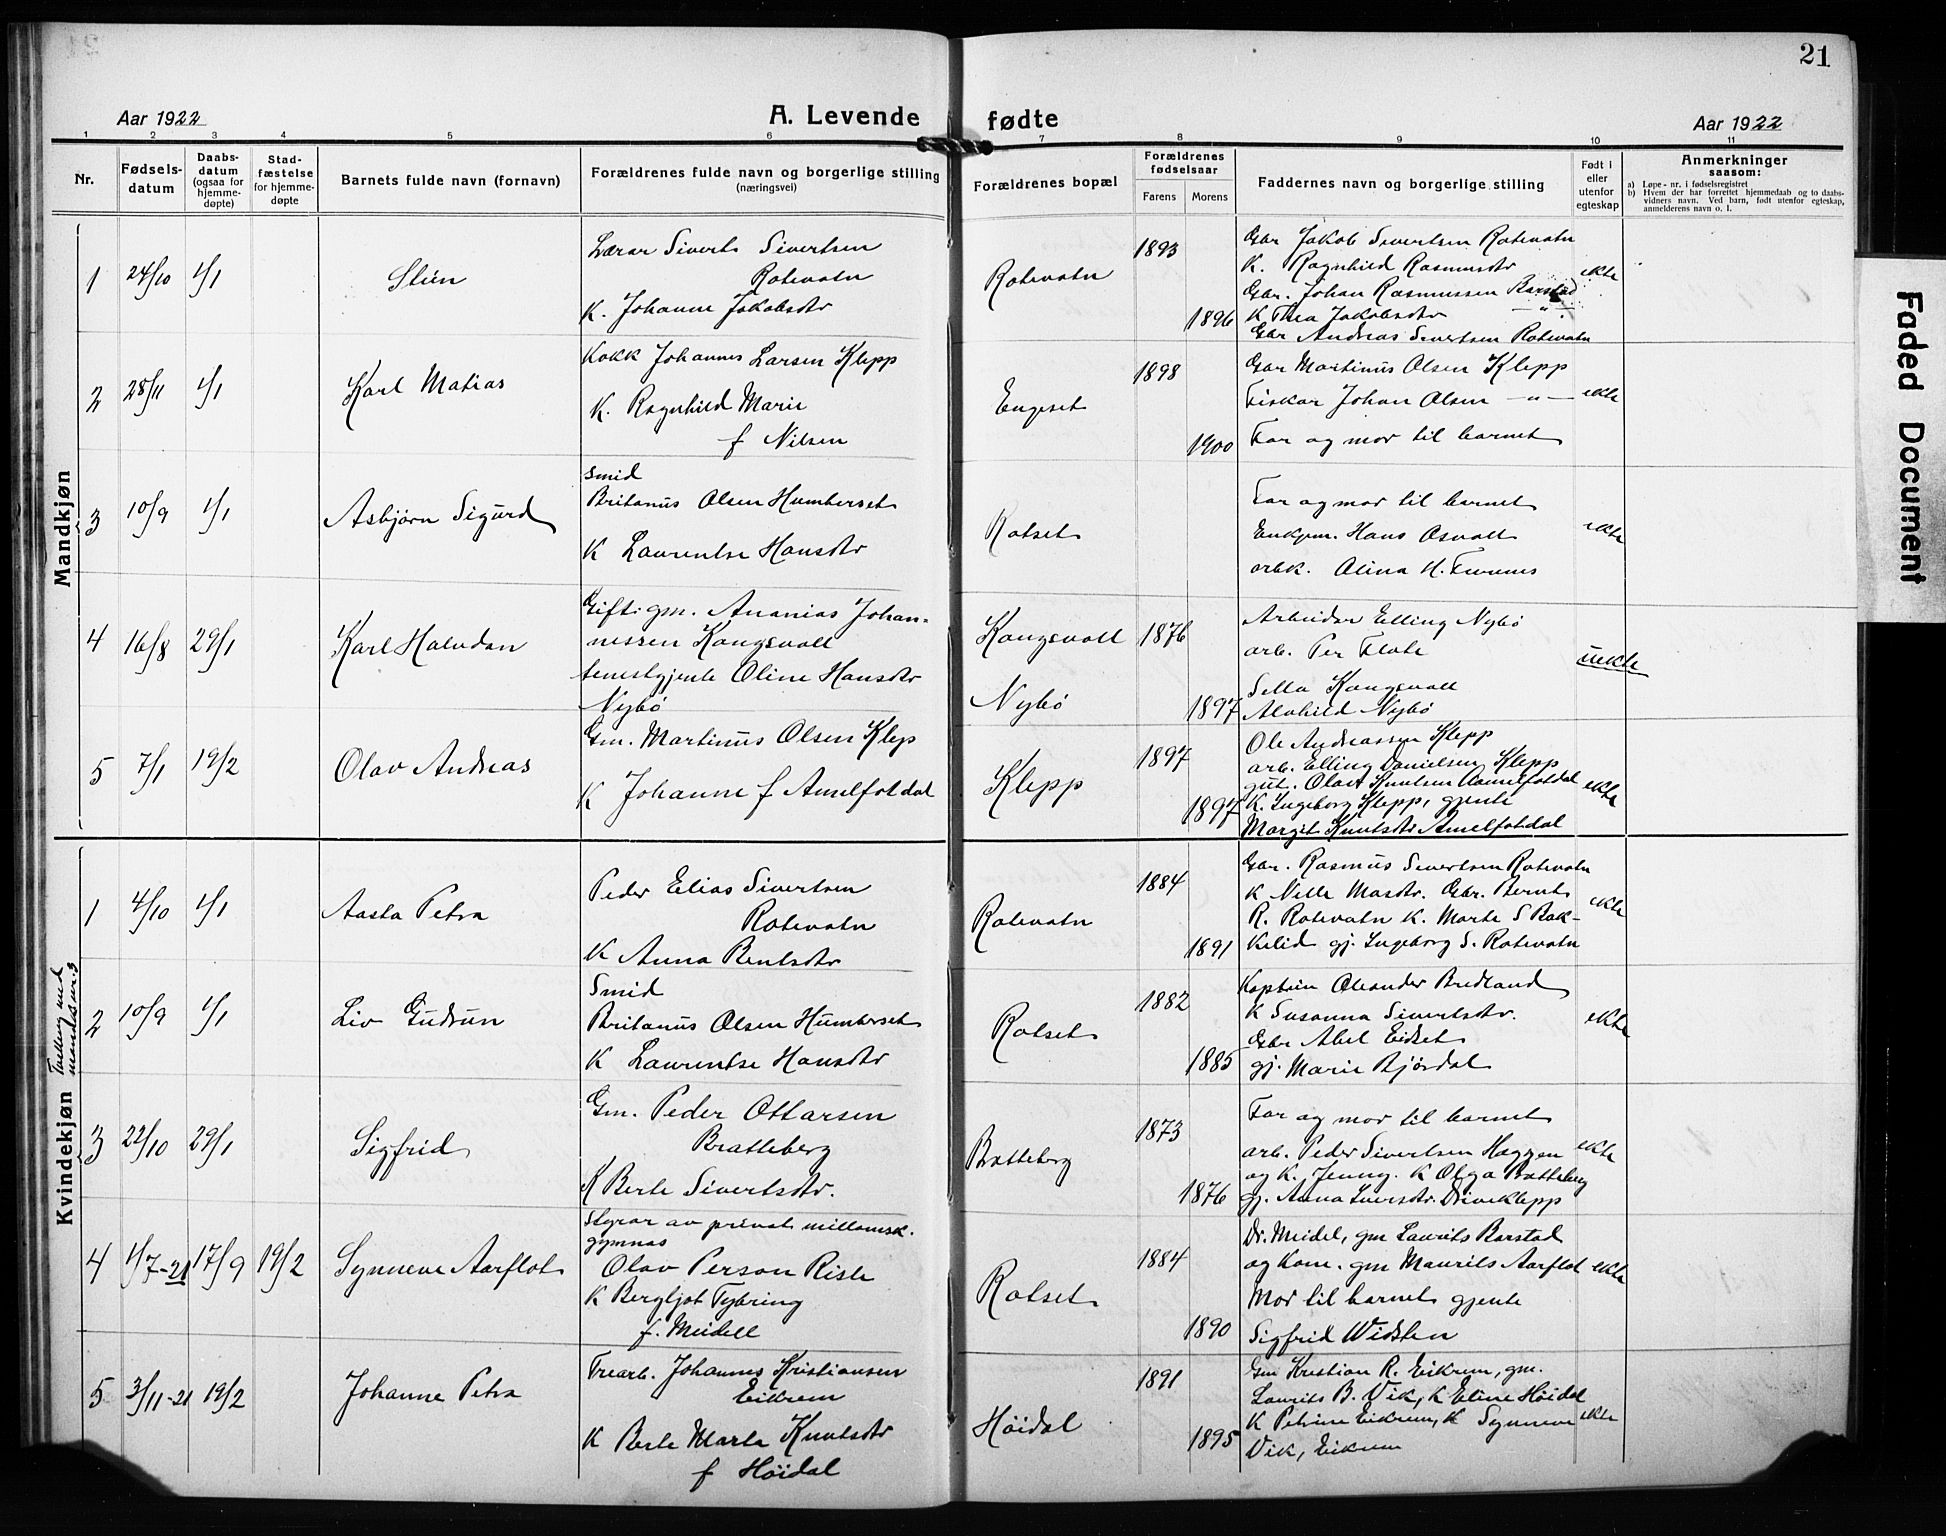 21
Aar 1922
A. Levende fødte
Aar 1922
1 2 3 4 5 6 7 8 9 10 11
Nr.
Fødsels-
datum
Daabs-
datum
(ogsaa for
hjemme-
døpte)
Stad-
fæstelse
for hjemme-
døpte
Barnets fulde navn (fornavn)
Forældrenes fulde navn og borgerlige stilling
(næringsvei)
Forældrenes bopæl
Forældrenes
fødselsaar
Farens
Morens
Faddernes navn og borgerlige stilling
Født i
eller
utenfor
egteskap
Anmerkninger
saasom:
a) Løpe-nr. i fødselsregistret
b) Hvem der har forrettet hjemmedaab og to daabs-
vidners navn. Ved barn, født utenfor egteskap,
anmelderens navn o. l.
Mandkjøn
1
24/10
1/1
Stein
Lærar Sivert Sivertsen
Rotevatn
K. Johanne Jakobsdtr
Rotevatn
1893
1896
Gbr Jakob Sivertsen Rotevatn
K. Ragnhild Rasmusdtr
Gbr. Johan Rasmussen Barstad
K Thea Jakobsdtr — " —
Gbr Andreas Sivertsen Rotevatn
ekte
2
28/11
1/1
Karl Matias
Kokk Johannes Larsen Klepp
K. Ragnhild Marie
f Nilsen
Engeset
1898
1900
Gbr Martinus Olsen Klepp
Fiskar Johan Olsen — " —
Far og mor til barnet
ekte
3
10/9
1/1
Asbjørn Sigurd
Smid
Britanus Olsen Humberset
K Laurentse Hansdtr
Rotset
Far og mor til barnet
Enkem. Hans Osvoll
arbk. Olina H. Furunes
ekte
4
16/8
29/1
Karl Halvdan
Gift gm. Ananias Johan-
nessen Kongsvoll
tenestgjente Oline Hansdtr
Nybø
Kongsvoll
Nybø
1876
1897
Arbeider Elling Nybø
arb. Per Flote
Sella Kongsvoll
Alvhild Nybø
uekte
5
7/1
19/2
Olav Andreas
Gm. Martinus Olsen Klep
K Johanne f Amelfotdal
Klepp
1897
1897
Ole Andreassen Klepp
arb. Elling Danielsen Klepp
gut. Olav Knutsen Aamelfotdal
K. Ingeborg Klepp, gjente
Margit Knutsdtr Amelfotdal
ekte
Kvindekjøn
1
4/10
1/1
Aasta Petra
Peder Elias Sivertsen
Rotevatn
K Anna Bentsdtr
Rotevatn
1884
1891
Gbr. Rasmus Sivertsen Rotevatn
K Nille Masdtr. Gbr. Bernt
R. Rotevatn K. Marte S Bak-
kelid gj. Ingeborg S. Rotevatn
ekte
Tvilling med
mandsnr. 3
2
10/9
1/1
Liv Gudrun
Smid
Britanus Olsen Humberset
K Laurentse Hansdtr
Rotset
1882
1885
Kaptein Oleander Bredland
K Susanna Sivertsdtr.
Gbr Abel Eidset
gj. Marie Bjørdal
ekte
3
22/10
29/1
Sigfrid
Gm. Peder Ottarsen
Bratteberg
K Berte Sivertsdtr.
Bratteberg
1873
1876
Far og mor til barnet
arb. Peder Sivertsen Haggen
og K. Jenny. K Olga Bratteberg
gj. Anna Iversdtr. Driveklepp
ekte
4
1/7-21
17/9
19/2
Synneve Aarflot
Styrar av privat millomsk.
gymnas
Olav Person Riste
K Bergljot Tybring
f. Meidell
Rotset
1884
1890
Dr. Meidel, gm Laurits Barstad
og Kone. gm Maurits Aarflot
Mor til barnet gjente
Sigfrid Widsten
ekte
5
3/11-21
19/2
Johanne Petra
Trearb. Johannes Kristiansen
Eikrem
K Berte Marta Knutsdtr
f Høidal
Høidal
1891
1895
Gm Kristian R. Eikrem, gm.
Laurits B. Vik, K Eline Høidal
K Petrine Eikrem, K Synneve
Vik, Eikrem
ekte
Faded Document